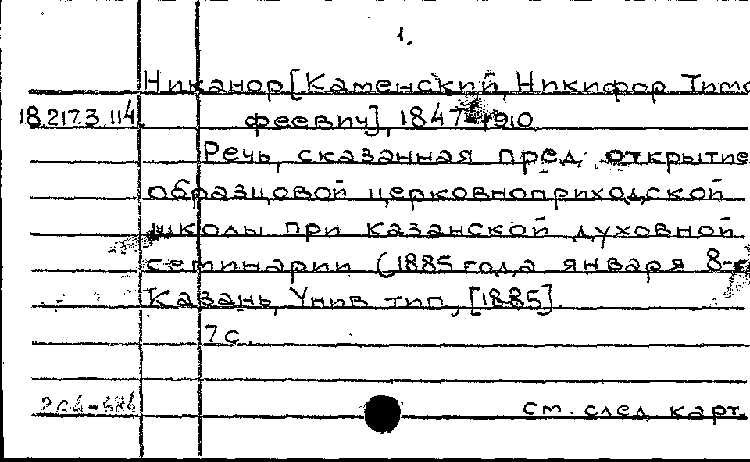 1.
Никанор [Каменский, Никифор Тимо
18.217.3.114. феевич], 1847-1910
Речь, сказанная пред открытие
образцовой церковноприходской
школы при Казанской духовной
семинарии (1885 года января 8-г
Казань, Унив. тип., [1885].
7 с.
см. след. карт.